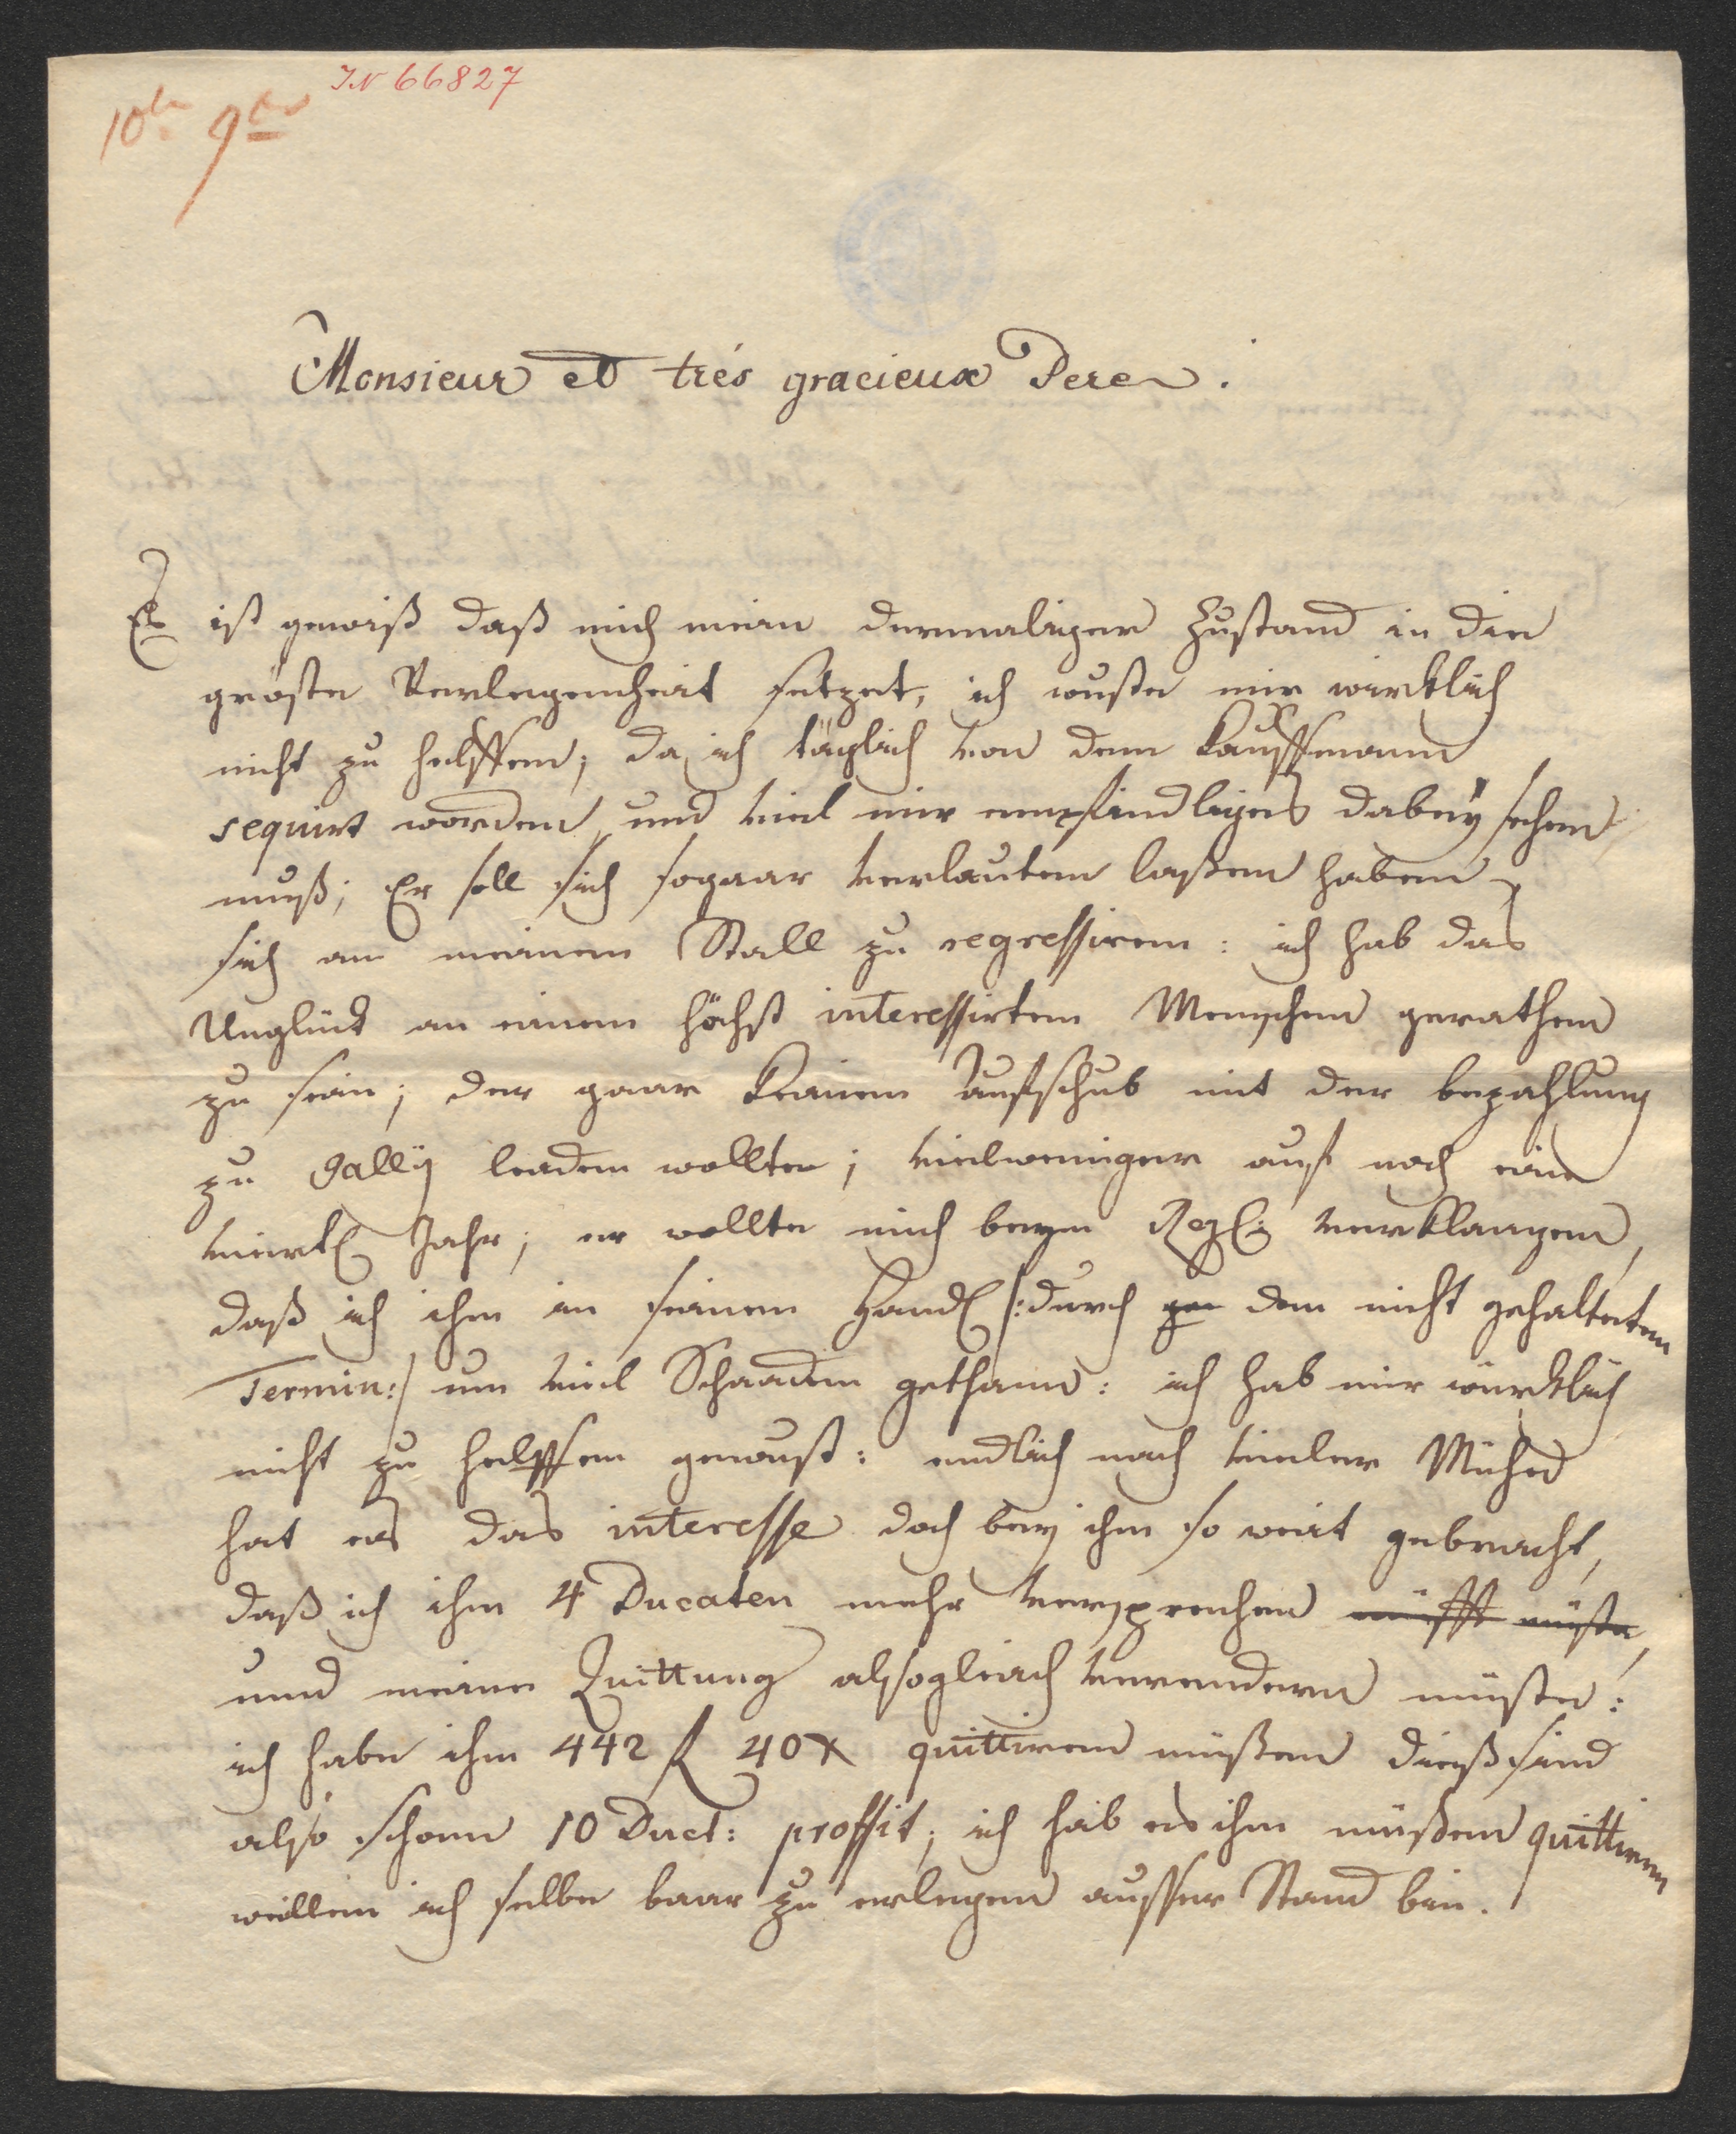 IN 66827
10br 9br
Monsieur et trés gracieux Pere.
Es ist gewiß daß mich mein dermaliger Zustand in die
gröste Verlegenheit setzet, ich wuste mir wircklich
nicht zu helffen; da ich täglich von dem Kauffmann
sequirt worden und viel mir empfindliches dabeÿ sehen
muß; Er soll sich sogaar verlauten laßen haben,
sich an meinem Stall zu regressiren: ich hab das
Unglück an einem höchst interessirten Menschen gerathen
zu sein; der gaar keinen aufschub mit der bezahlung
zu leaden wollte; vielweniger auf noch ein
viertl Jahr; er wollte mich beym Reg: verklangen,
daß ich ihm in seinem Handl /: durch den nicht gehalteten
Termin:/ um viel Schaaden gethann: ich hab mir würcklich
nicht zu helffen gewust: endlich nach vieler Mühe
hat es das interesse doch bey ihm so weit gebracht,
daß ich ihm 4 Ducaten mehr versprechen müsste,
und meine Quittung alsogleich verendern müste:
ich habe ihm 442 f 40 x quittiren müßen dieß sind
also schonn 10 Duct: proffit; ich hab es ihm müßen quittiren
weillen ich selbe baar zu erlegen ausser Stand bin.